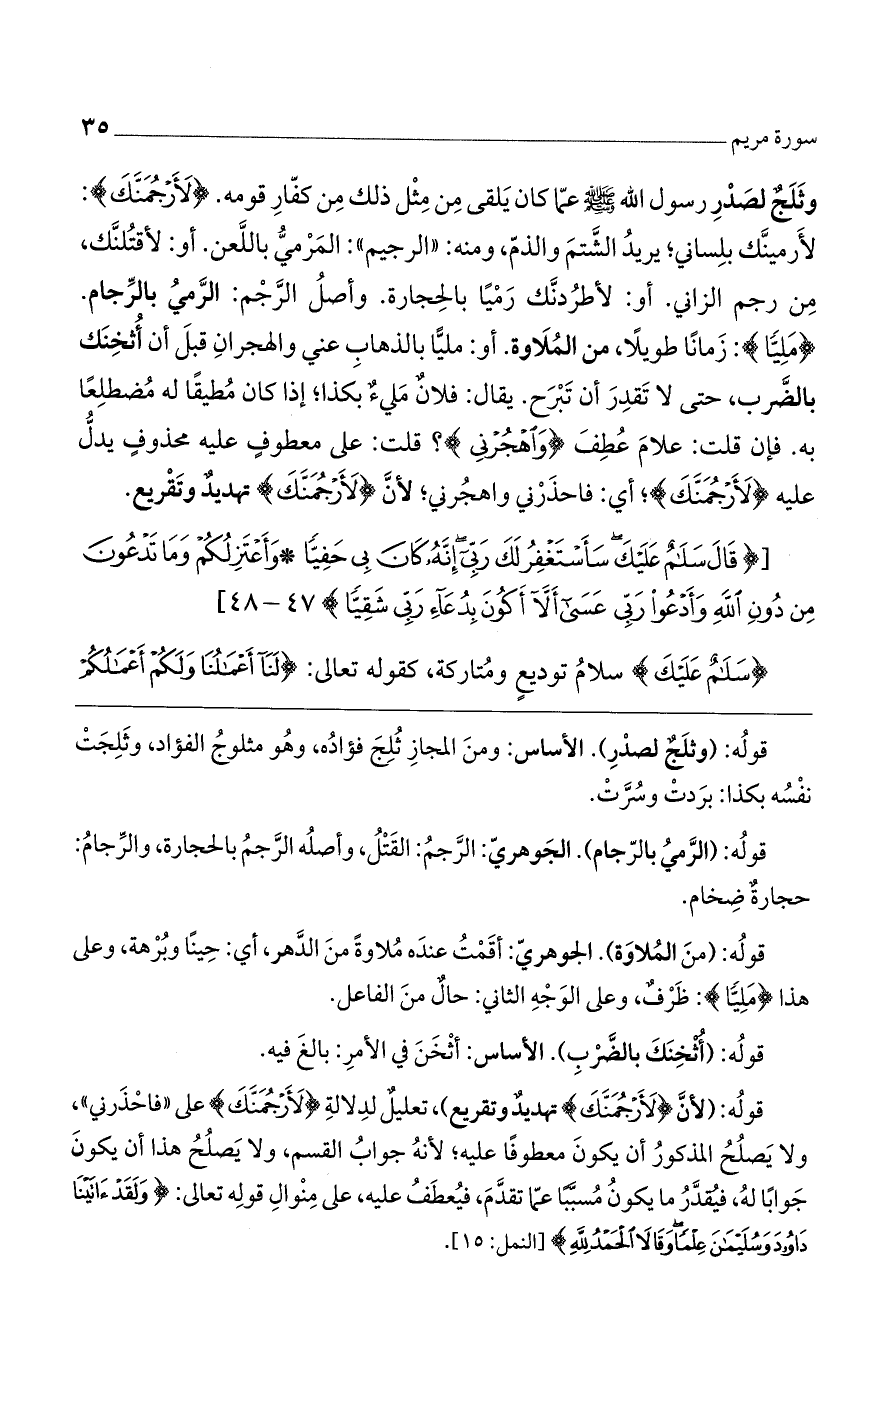 سورة مريم ٣٥
وثَلَجٌ لصَدْرِ رسول الله ﷺ عمّا كان يَلقى مِن مِثْل ذلك مِن كفّارِ قومه. ﴿لَأَرْجُمَنَّكَ﴾:
لأرمينَّك بلِساني؛ يريدُ الشَّتمَ والذمّ، ومنه: «الرجيم»: المَرْميُّ باللَّعن. أو: لأقتُلنَّك،
مِن رجم الزاني. أو: لأطرُدنَّك رَمْيًا بالحِجارة. وأصلُ الرَّجْم: الرَّميُ بالرِّجام.
﴿مَلِيًّا﴾: زَمانًا طويلًا، من المُلَاوة. أو: مليًّا بالذهابِ عني والهجرانِ قبلَ أن أُثْخِنَك
بالضَّرب، حتى لا تَقدِرَ أن تَبْرَح. يقال: فلانٌ مَليءٌ بكذا؛ إذا كان مُطيقًا له مُضطلِعًا
به. فإن قلت: علامَ عُطِفَ ﴿وَٱهْجُرْنِى﴾؟ قلت: على معطوفٍ عليه محذوفٍ يدلُّ
عليه ﴿لَأَرْجُمَنَّكَ﴾؛ أي: فاحذَرْني واهجُرني؛ لأنَّ ﴿لَأَرْجُمَنَّكَ﴾ تهديدٌ وتَقْريع.
[﴿قَالَ سَلَٰمٌ عَلَيْكَ ۖ سَأَسْتَغْفِرُ لَكَ رَبِّىٓ ۖ إِنَّهُۥ كَانَ بِى حَفِيًّا * وَأَعْتَزِلُكُمْ وَمَا تَدْعُونَ
مِن دُونِ ٱللَّهِ وَأَدْعُوا۟ رَبِّى عَسَىٰٓ أَلَّآ أَكُونَ بِدُعَآءِ رَبِّى شَقِيًّا﴾ ٤٧ – ٤٨]
﴿سَلَٰمٌ عَلَيْكَ﴾ سلامُ توديعٍ ومُتاركة، كقوله تعالى: ﴿لَنَآ أَعْمَٰلُنَا وَلَكُمْ أَعْمَٰلُكُمْ
قولُه: (وثَلَجٌ لصدْرِ). الأساس: ومنَ المجازِ ثُلِجَ فؤادُه، وهُو مثلوجُ الفؤاد، وثَلِجَتْ
نفْسُه بكذا: بَردتْ وسُرَّتْ.
قولُه: (الرَّميُ بالرّجام). الجَوهريّ: الرَّجمُ: القَتْلُ، وأصلُه الرَّجمُ بالحجارة، والرِّجامُ:
حجارةٌ ضِخام.
قولُه: (منَ المُلاوَة). الجوهريّ: أقَمْتُ عندَه مُلاوةً منَ الدَّهر، أي: حِينًا وبُرْهة، وعلى
هذا ﴿مَلِيًّا﴾: ظَرْفٌ، وعلى الوَجْهِ الثاني: حالٌ منَ الفاعل.
قولُه: (أُثْخِنَكَ بالضَّرْبِ). الأساس: أثْخَنَ في الأمرِ: بالغَ فيه.
قولُه: (لأنَّ ﴿لَأَرْجُمَنَّكَ﴾ تهديدٌ وتقريع)، تعليلٌ لدِلالةِ ﴿لَأَرْجُمَنَّكَ﴾ على «فاحْذَرني»،
ولا يَصلُحُ المذكورُ أن يكونَ معطوفًا عليه؛ لأنهُ جوابُ القسم، ولا يَصلُحُ هذا أن يكونَ
جَوابًا لهُ، فيُقدَّرُ ما يكونُ مُسبَّبًا عمّا تقدَّمَ، فيُعطَفُ عليه، على مِنْوالِ قولِه تعالى: ﴿وَلَقَدْ ءَاتَيْنَا
دَاوُۥدَ وَسُلَيْمَٰنَ عِلْمًا ۖ وَقَالَا ٱلْحَمْدُ لِلَّهِ﴾ [النمل: ١٥].